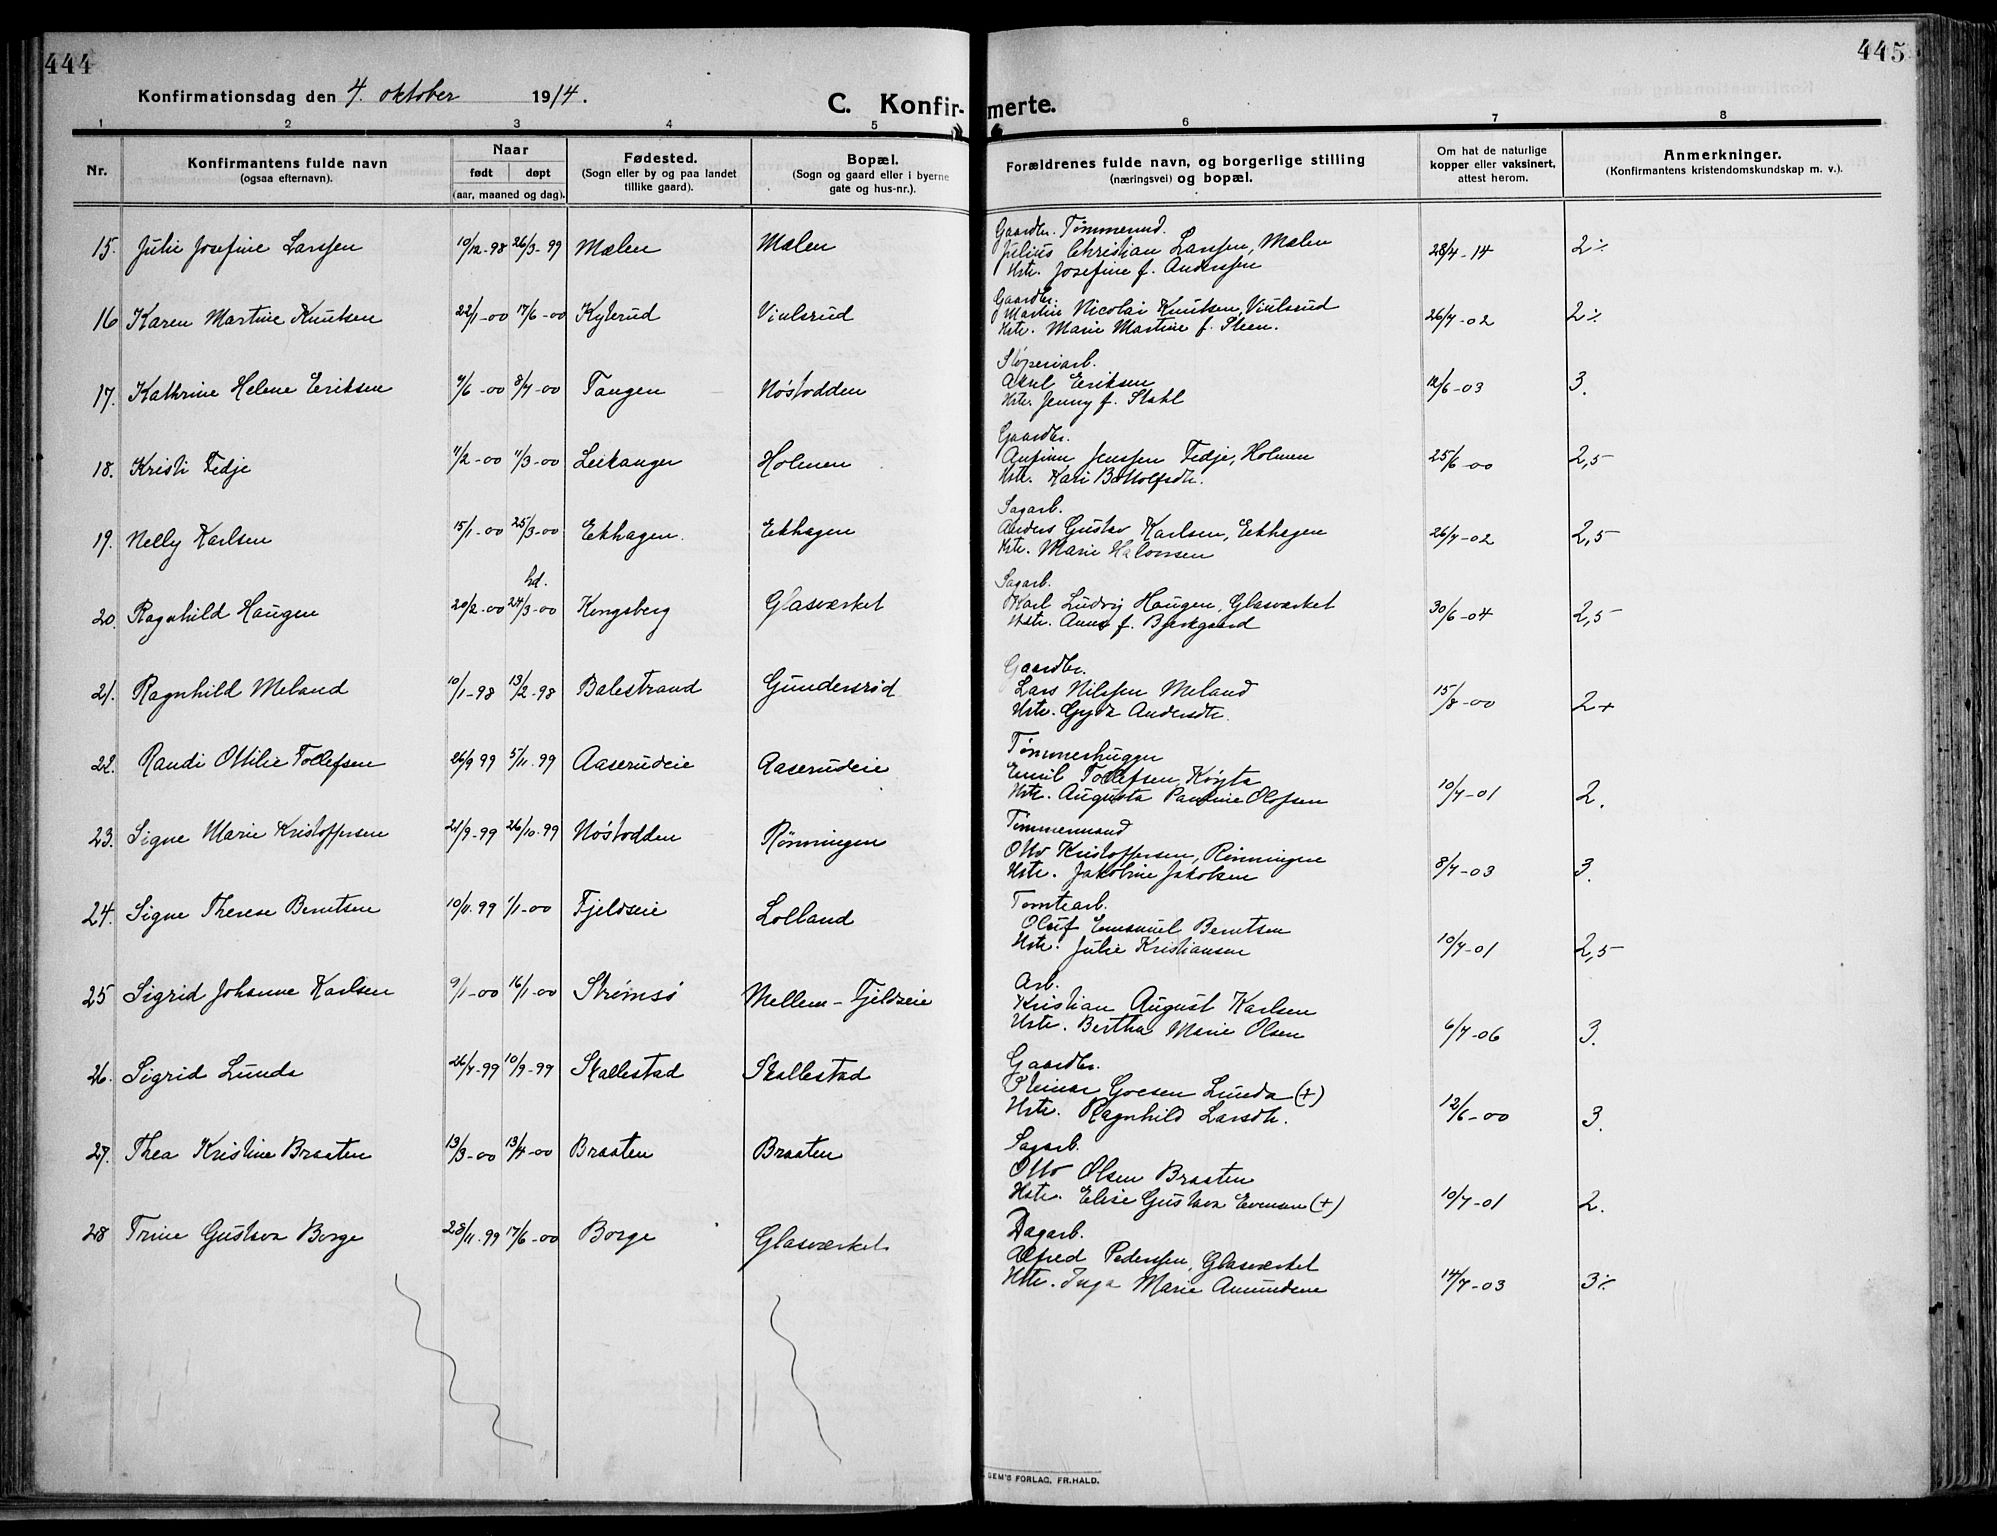 444
Konfirmationsdag den 4. oktober 1914.
C. Konfir-
1 2 3 4 5
Nr.
Konfirmantens fulde navn
(ogsaa efternavn).
Naar
født døpt
(aar, maaned og dag).
Fødested.
(Sogn eller by og paa landet
tillike gaard).
Bopæl.
(Sogn og gaard eller i byerne
gate og hus-nr.).
15. Julie Josefine Larssen 10/12-98 26/3-99 Mælen Mælen
16 Karen Martine Knutsen 22/1-00 17/6-00 Kylerud Viulsrud
17. Kathrine Helene Eriksen 4/6-00 8/7-00 Tangen Nøstodden
18. Kristi Fedje 11/2-00 11/3-00 Leikanger Holmen
19. Nelly Karlsen 15/1-00 25/3-00 Ekhagen. Ekhagen
hd.
20. Ragnhild Haugen 20/2-00 24/3-00 Kongsberg Glasværket
21. Ragnhild Meland 10/1-98 13/2-98 Balestrand Gundersrød
22. Randi Ottilie Tollefsen 26/9 99 5/11.99 Aaserudeie Aaserudeie
23. Signe Marie Kristoffersen 21/9-99 26/10-99 Nøstodden Rønningen
24. Signe Therese Berntsen 10/11.99 1/1-00 Fjeldseie Lolland
25 Sigrid Johanne Karlsen 9/1-00 16/1-00 Strømsø Mellem-Fjeldseie
26. Sigrid Lunda 26/7-99 10/9-99 Skallestad Skallestad
27. Thea Kristine Braaten 13/3-00 13/4-00 Braaten Braaten
28 Trine Gustava Borge 28/11.99 17/6-00 Borge Glasværket
445
merte.
6 7 8
Forældrenes fulde navn, og borgerlige stilling
(næringsvei) og bopæl.
Om hat de naturlige
kopper eller vaksinert,
attest herom.
Anmerkninger.
(Konfirmantens kristendomskundskap m. v.).
Gaardbr. Tømmermd.
Julius Christian Larssen, Mælen
Hstr. Josefine f. Anderssen 28/4-14 2÷
Gaardbr.
Martin Nicolai Knutsen, Viulsrud
Hstr. Marie Martine f. Steen. 26/7-02 2÷
Støperiarb.
Axel Eriksen
Hstr. Jenny f. Stahl 12/6-03 3.
Gaardbr.
Anfinn Jenssen Fedje, Holmen
Hstr. Kari Bottolfsdtr. 25/6-00 2,5
Sagarb.
Anders Gustav Karlsen, Ekhagen
Hstr. Marie Halvorsen 26/7-02 2,5
Sagarb.
Karl Ludvig Haugen, Glasværket
Hstr. Anna f. Bjerkgaard 30/6-04 2,5
Gaardbr.
Lars Nilssen Meland
Hstr. Gyda Andersdtr. 15/8-00 2+
Tømmerhugger
Emil Tollefsen, Køyta
Hstr. Augusta Pauline Olofsen 10/7-01 2.
Tømmermand
Otto Kristoffersen, Rønningen
Hstr. Jakobine Jakobsen 8/7-03 3.
Tomtearb.
Oluf Emanuel Berntsen
Hstr. Julie Kristiansen 10/7-01 2,5
Arb.
Kristian August Karlsen
Hstr. Bertha Marie Olsen 6/7-06 3.
Gaardbr.
Steinar Goesen Lunda (+)
Hstr. Ragnhild Larsdtr. 12/6-00 3.
Sagarb.
Otto Olsen Braaten
Hstr. Elise Gustava Evensen (+) 10/7-01 2.
Dagarb.
Alfred Pederssen, Glasværket
Hstr. Inga Marie Amundsen 14/7-03 3÷
SEM'S FORLAG, FR.HALD.